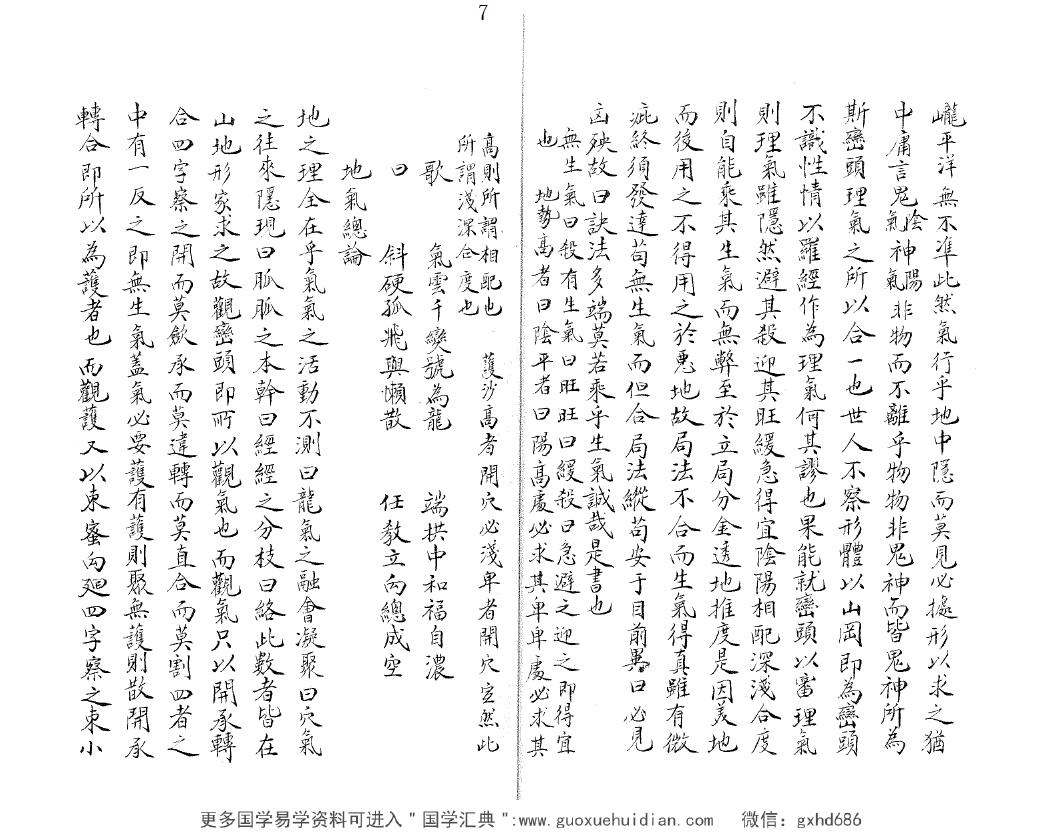 7
巃平洋無不準此然氣行乎地中隱而莫見必據形以求之猶
中庸言鬼陰氣神陽氣非物而不離乎物物非鬼神而皆鬼神所為
斯巒頭理氣之所以合一也世人不察形體以山岡即為巒頭
不識性情以羅經作為理氣何其謬也果能就巒頭以審理氣
則理氣雖隱然避其殺迎其旺緩急得宜陰陽相配深淺合度
則自能乘其生氣而無弊至於立局分金透地推度是因美地
而後用之不得用之於惡地故局法不合而生氣得真雖有微
疵終須發達苟無生氣而但合局法縱苟安于目前異日必見
凶殃故曰訣法多端莫若乘乎生氣誠哉是書也
無生氣曰殺有生氣曰旺旺曰緩殺曰急避之迎之即得宜
也 地勢高者曰陰平者曰陽高處必求其卑卑處必求其
高則所謂相配也 護沙高者開穴必淺卑者開穴宜然此
所謂淺深合度也
歌 氣雲千變號為龍 端拱中和福自濃
曰 斜硬孤飛與懶散 任教立向總成空
地氣總論
地之理全在乎氣氣之活動不測曰龍氣之融會凝聚曰穴氣
之往來隱現曰脈脈之本幹曰經經之分枝曰絡此數者皆在
山地形家求之故觀巒頭即所以觀氣也而觀氣只以開承轉
合四字察之開而莫斂承而莫違轉而莫直合而莫割四者之
中有一反之即無生氣蓋氣必要護有護則聚無護則散開承
轉合即所以為護者也而觀護又以束蜜向廻四字察之束小
更多国学易学资料可进入＂国学汇典＂:www.guoxuehuidian.com 微信：gxhd686